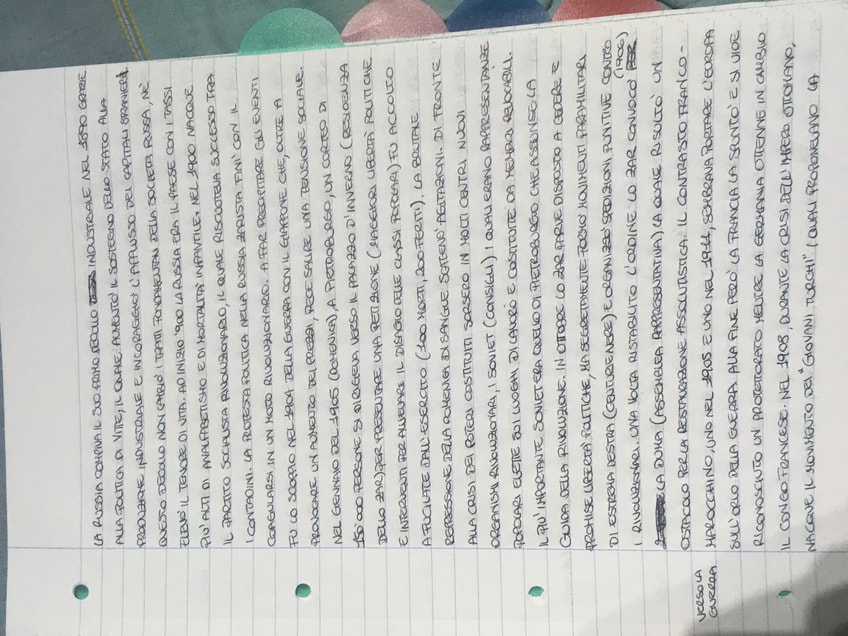 LA RUSSIA COMPIVA IL SUO PRIMO DECOLLO INDUSTRIALE NEL 1890 GRAZIE
ALLA POLITICA DI VITTE, IL QUALE AUMENTÒ IL SOSTEGNO DELLO STATO ALLA
PRODUZIONE INDUSTRIALE E INCORAGGIÒ L'AFFLUSSO DEI CAPITALI STRANIERI.
QUESTO DECOLLO NON CAMBIÒ I TRATTI FONDAMENTALI DELLA SOCIETÀ RUSSA, NÈ
ELEVÒ IL TENORE DI VITA. AD INIZIO '900 LA RUSSIA ERA IL PAESE CON I TASSI
PIÙ ALTI DI ANALFABETISMO E DI MORTALITÀ INFANTILE. NEL 1900 NACQUE
IL PARTITO SOCIALISTA RIVOLUZIONARIO, IL QUALE RISCUOTEVA SUCCESSO TRA
I CONTADINI. LA PROTESTA POLITICA NELLA RUSSIA ZARISTA FINÌ CON IL
COAGULARSI IN UN MOTO RIVOLUZIONARIO. A FAR PRECIPITARE GLI EVENTI
FU LO SCOPPIO NEL 1904 DELLA GUERRA CON IL GIAPPONE CHE, OLTRE A
PROVOCARE UN AUMENTO DEI PREZZI, FECE SALIRE UNA TENSIONE SOCIALE.
NEL GENNAIO DEL 1905 (DOMENICA), A PIETROBURGO, UN CORTEO DI
150 000 PERSONE SI DIRIGEVA VERSO IL PALAZZO D'INVERNO (RESIDENZA
DELLO ZAR) PER PRESENTARE UNA PETIZIONE (MAGGIORI LIBERTÀ POLITICHE
E INTERVENTI PER ALLEVIARE IL DISAGIO DELLE CLASSI POPOLARI) FU ACCOLTO
A FUCILATE DALL'ESERCITO (100 MORTI, 200 FERITI). LA BRUTALE
REPRESSIONE DELLA DOMENICA DI SANGUE SCATENÒ AGITAZIONI. DI FRONTE
ALLA CRISI DEI POTERI COSTITUITI SORSERO IN MOLTI CENTRI NUOVI
ORGANISMI RIVOLUZIONARI, I SOVIET (CONSIGLI) I QUALI ERANO RAPPRESENTANZE
POPOLARI ELETTE SUI LUOGHI DI LAVORO E COSTITUITE DA MEMBRI REVOCABILI.
IL PIÙ IMPORTANTE SOVIET ERA QUELLO DI PIETROBURGO, CHE ASSUNSE LA
GUIDA DELLA RIVOLUZIONE. IN OTTOBRE LO ZAR PARVE DISPOSTO A CEDERE E
PROMISE LIBERTÀ POLITICHE, MA SEGRETAMENTE FORMÒ MOVIMENTI PARAMILITARI
DI ESTREMA DESTRA (CENTURIE NERE) E ORGANIZZÒ SPEDIZIONI PUNITIVE CONTRO
I RIVOLUZIONARI. UNA VOLTA RISTABILITO L'ORDINE LO ZAR CONVOCÒ (1906)
LA DUMA (ASSEMBLEA RAPPRESENTATIVA) LA QUALE RISULTÒ UN
OSTACOLO PER LA RESTAURAZIONE ASSOLUTISTICA. IL CONTRASTO FRANCO-
VERSO LA GUERRA
MAROCCHINO, UNO NEL 1905 E UNO NEL 1911, SEMBRAVA PORTARE L'EUROPA
SULL'ORLO DELLA GUERRA. ALLA FINE PERÒ LA FRANCIA LA SPUNTÒ E SI VIDE
RICONOSCIUTO UN PROTETTORATO MENTRE LA GERMANIA OTTENNE IN CAMBIO
IL CONGO FRANCESE. NEL 1908, DURANTE LA CRISI DELL'IMPERO OTTOMANO,
NACQUE IL MOVIMENTO DEI "GIOVANI TURCHI" (QUALI PROPONEVANO LA